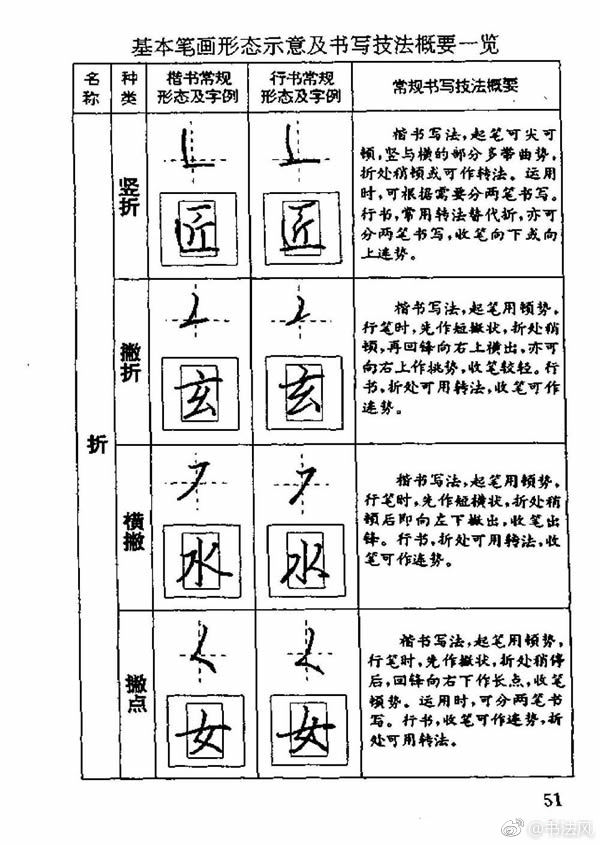 基本笔画形态示意及书写技法概要一览
名称
种类
楷书常规形态及字例
行书常规形态及字例
常规书写技法概要
折
竖折
匠
匠
楷书写法，起笔可尖可
顿，竖与横的部分多带曲势，
折处稍顿或可作转法。运用
时，可根据需要分两笔书写。
行书，常用转法替代折，亦可
分两笔书写，收笔向下或向
上连势。
撇折
玄
玄
楷书写法，起笔用顿势，
行笔时，先作短撇状，折处稍
顿，再回锋向右上横出，亦可
向右上作挑势，收笔较轻。行
书，折处可用转法，收笔可作
连势。
横撇
水
水
楷书写法，起笔用顿势，
行笔时，先作短横状，折处稍
顿后即向左下撇出，收笔出
锋。行书，折处可用转法，收
笔可作连势。
撇点
女
女
楷书写法，起笔用顿势，
行笔时，先作撇状，折处稍停
后，回锋向右下作长点，收笔
顿势。运用时，可分两笔书
写。行书，收笔可作连势，折
处可用转法。
51
@书法风